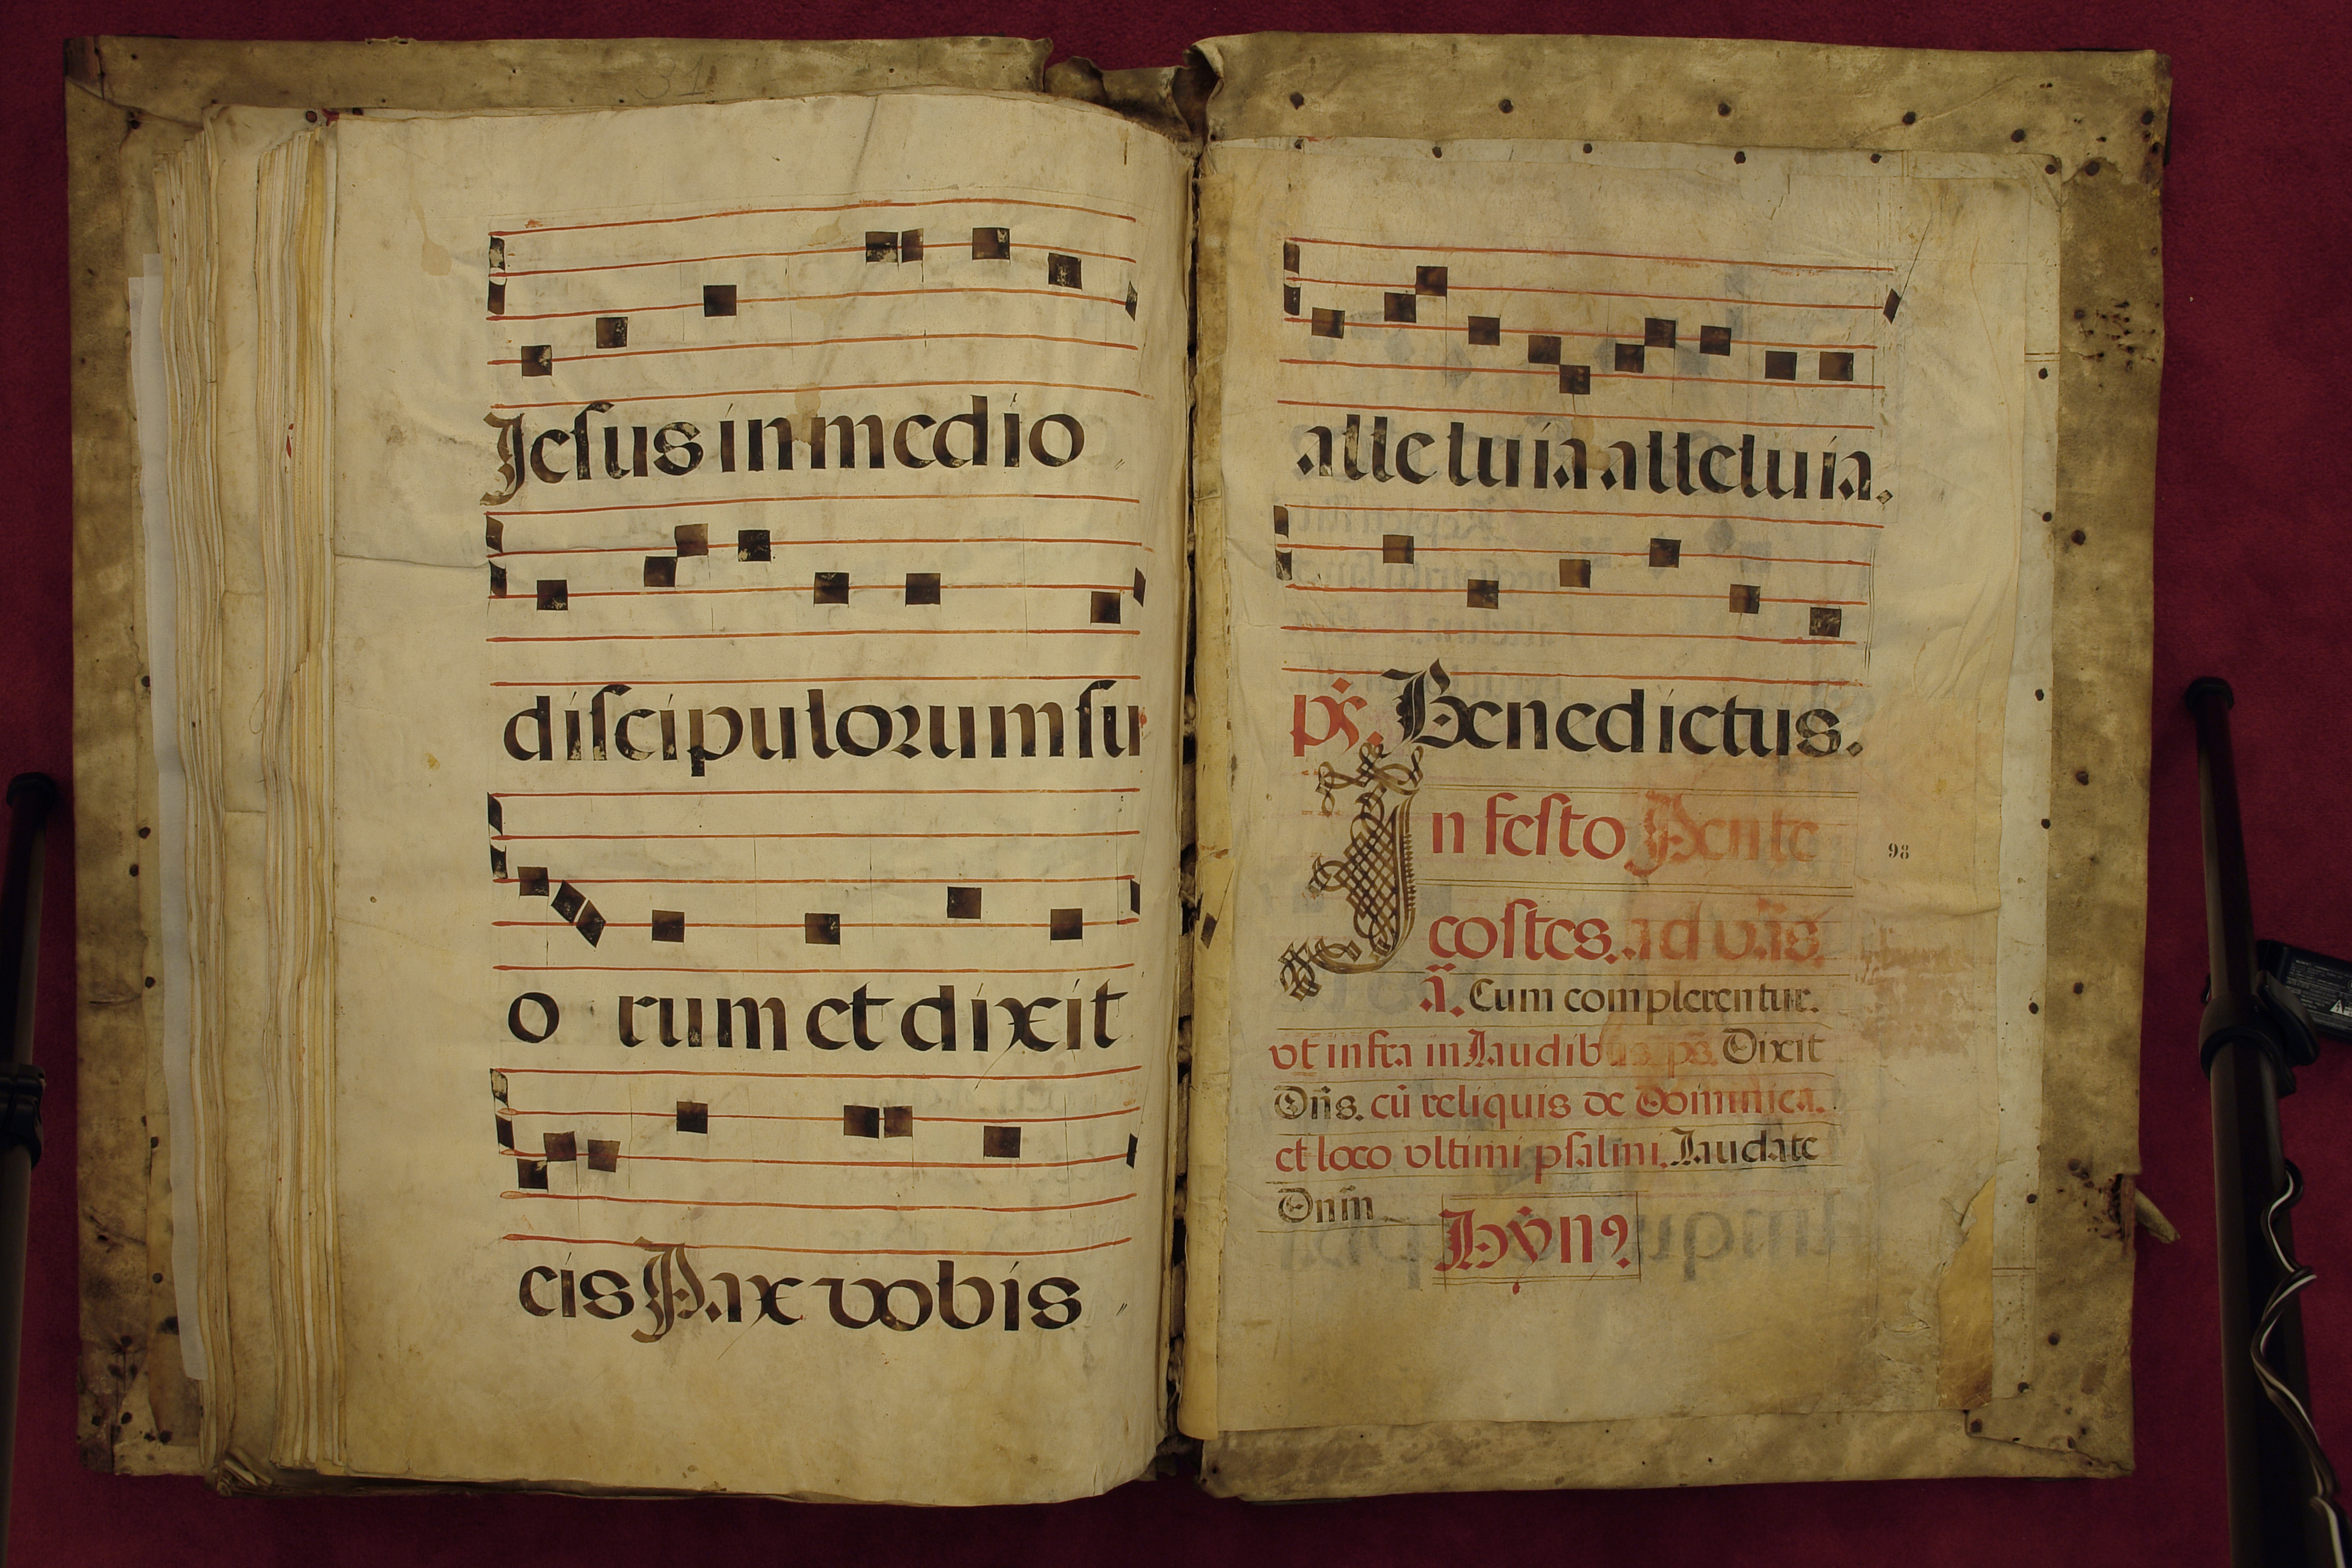 31
Jesus in medio
discipulorum su
o rum et dixit
cis Pax vobis
alleluia alleluia.
ps. Benedictus.
In festo Pente
costes. ad v̄as.
98
ā. Cum complerentur.
vt infra in Laudib ps. Dixit
Dn̄s. cū reliquis de Dominica.
et loco vltimi psalmi. Laudate
Dnm̄